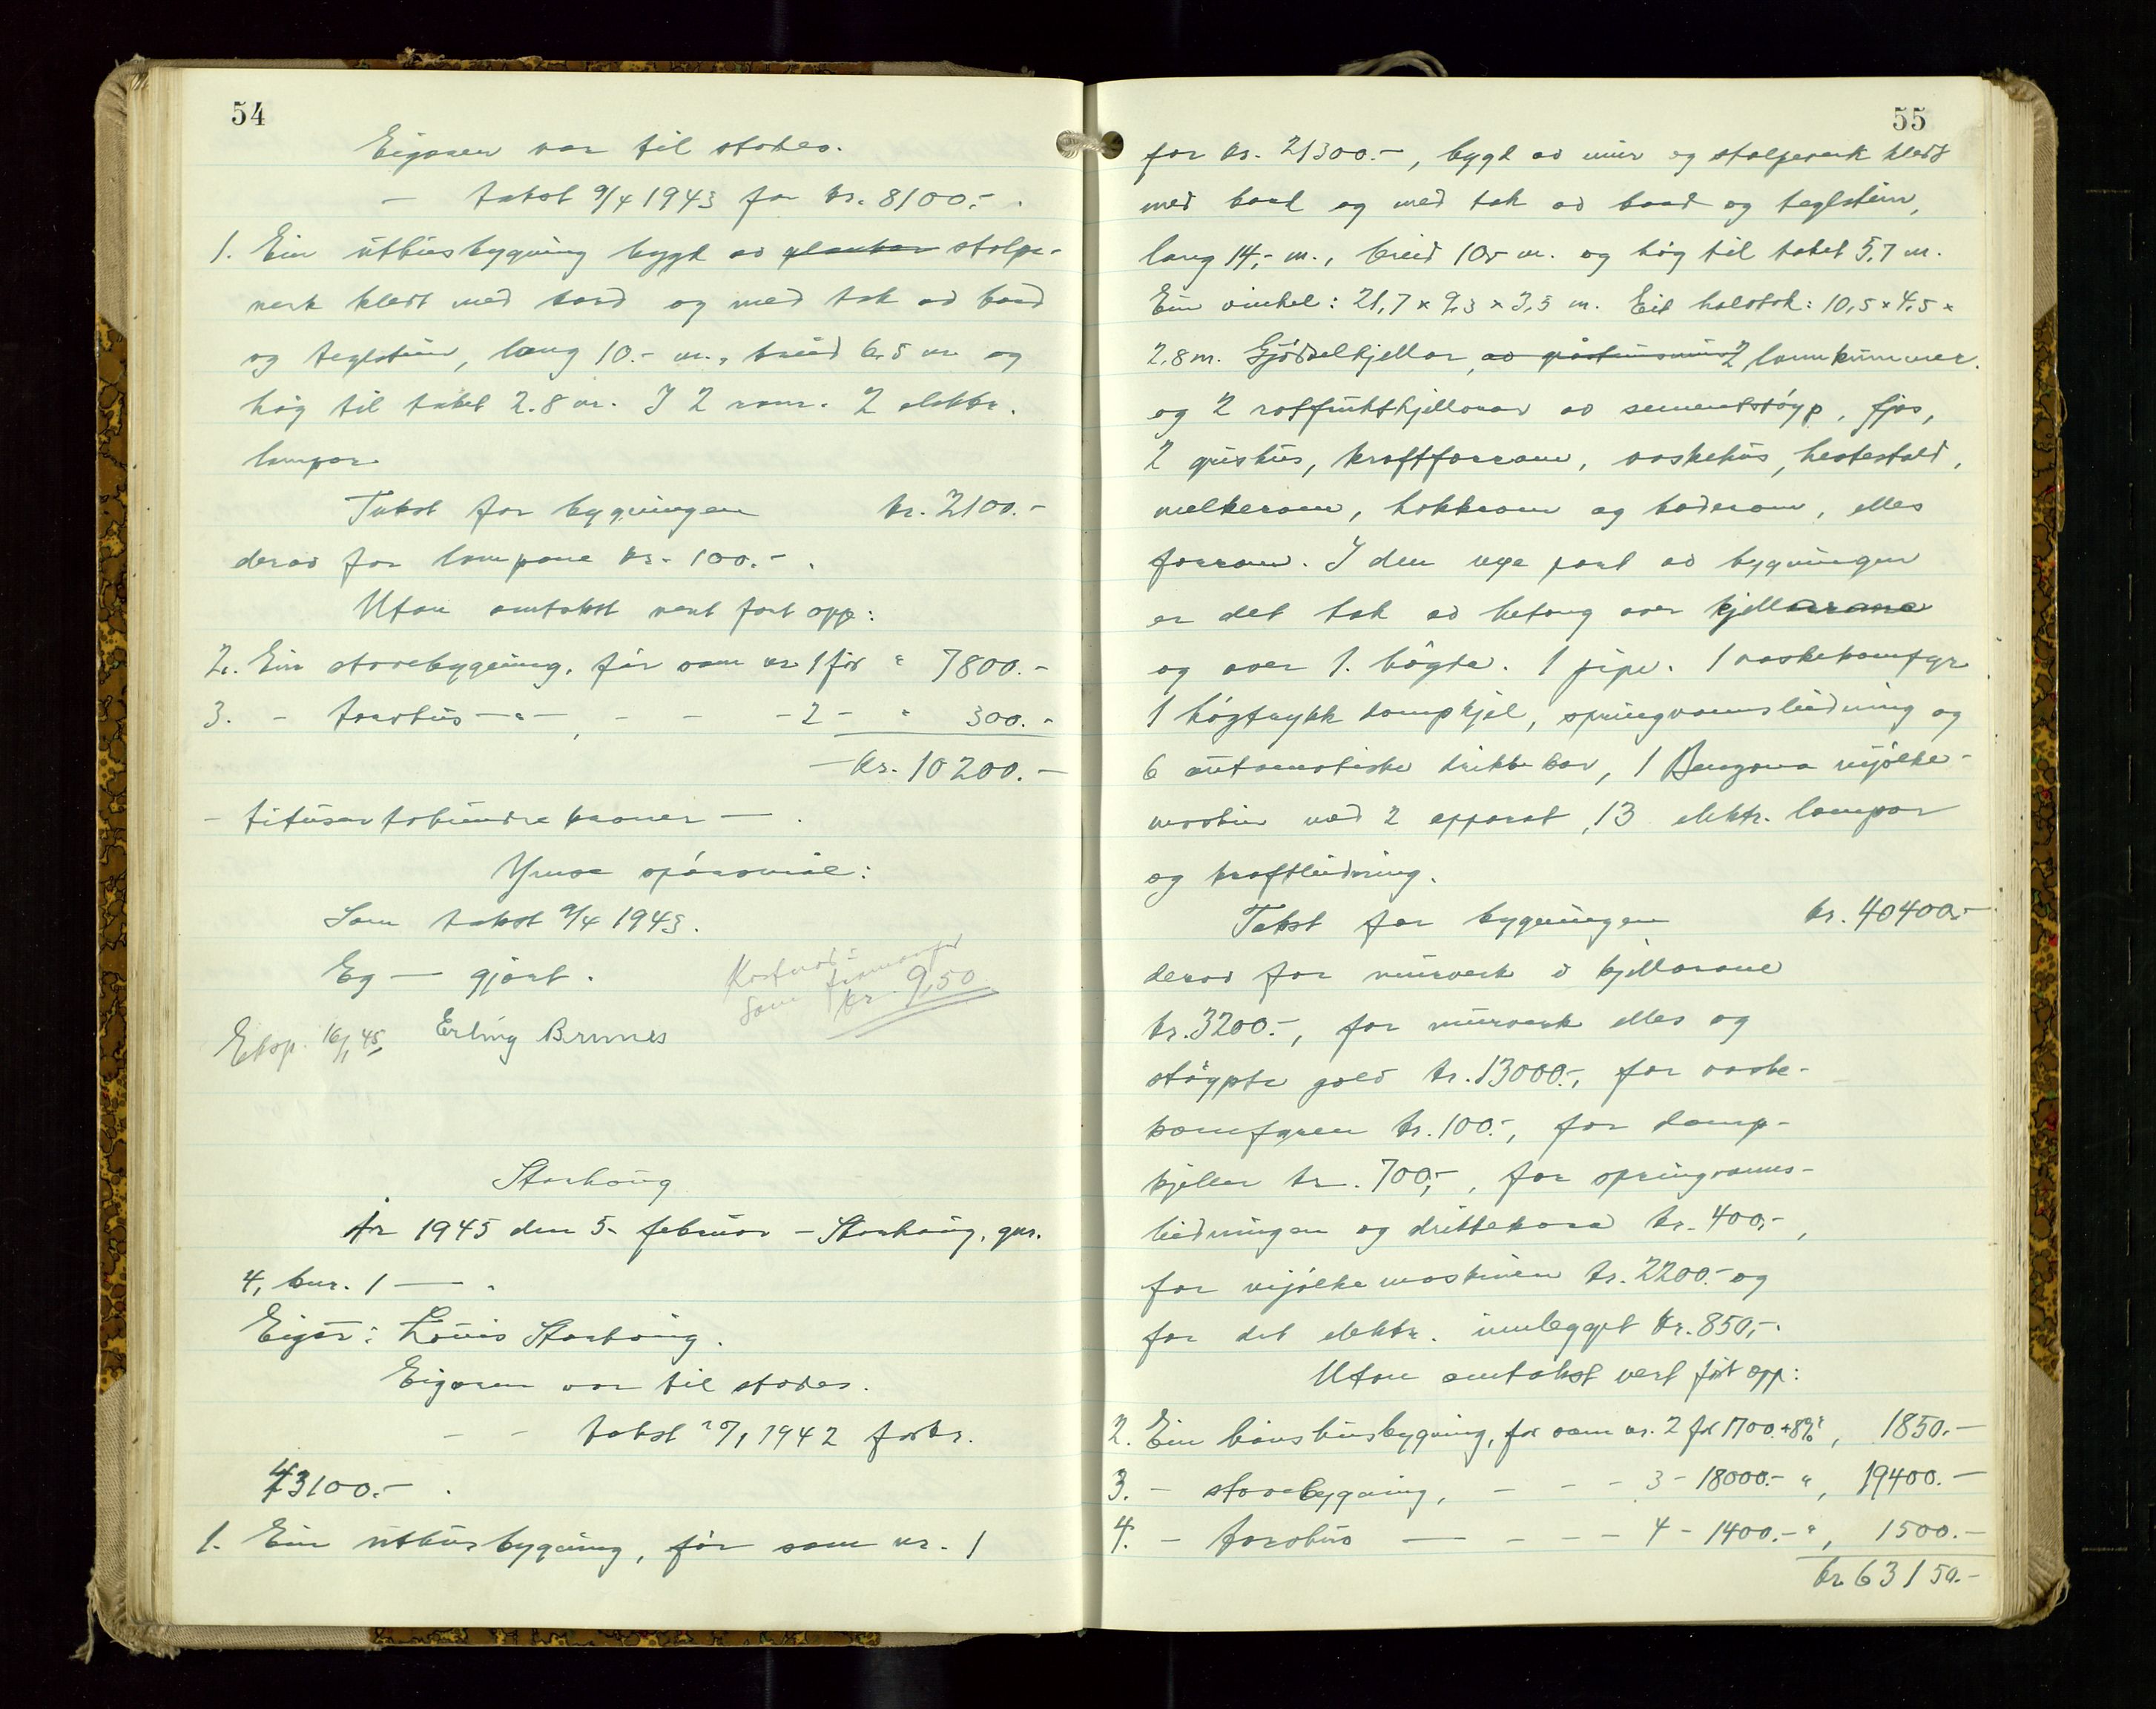 54
Eigaren var til stades.
— takst 9/4 1943 for kr. 8100.- .
1. Ein uthusbygning bygd av plankar stolpe-
verk kledt med bord og med tak av bord
og teglstein, lang 10.- m., breid 6,5 m og
høg til taket 2.8 m. I 2 rom. 2 elektr.
lampor
Takst for bygningen kr. 2100.-
derav for lampone kr. 100.- .
Utan omtakst vert ført opp:
2. Ein stovebygning, før som nr 1 for " 7800.-
3. - torvhus -"- , - - - 2 - " 300.-
— kr. 10200.-
- titusen tohundre kroner — .
Ymse spørsmål:
Som takst 9/4 1943.
Eg — gjort.
Kostnad:
Som framanfor
kr. 9,50
Eksp. 16/1 45, Erling Brunes
Storhaug
År 1945 den 5. februar - Storhaug, gnr.
4, bnr. 1 — .
Eigar: Louis Storhaug.
Eigaren var til stades.
- - takst 20/1 1942 for kr.
43100.- .
1. Ein uthusbygning, før som nr. 1
55
for kr. 21300.-, bygd av mur og stolpeverk kledt
med bord og med tak av bord og teglstein,
lang 14,- m., breid 10,- m. og høg til taket 5,7 m.
Ein vinkel: 21,7 x 9,3 x 3,5 m. Eit halvtak: 10,5 x 4,5 x
2,8 m. Gjødselkjellar, av gråsteinsmur 2 landkummer
og 2 rotfruktkjellarar av sementstøyp, fjøs,
2 grishus, kraftforrom, vaskehus, hestestald,
melkerom, hakkrom og baderom, elles
forrom. I den nye part av bygningen
er det tak av betong over kjellarane
og over 1. høgda. 1 pipe. 1 vaskekomfyr
1 høgtrykk dampkjel, springvannsleidning og
6 automatiske drikkekar, 1 Benzona mjølke-
maskin med 2 apparat, 13 elektr. lampor
og kraftleidning.
Takst for bygningen kr. 40400.-
derav for murverk i kjellarane
kr. 3200.-, for murverk elles og
støypte golv kr. 13000.-, for vaske-
komfyren kr. 100.-, for damp-
kjelen kr. 700,-, for springvanns-
leidningen og drikkekara kr. 400,-,
for mjølkemaskinen kr. 2200.- og
for det elektr. innlegget kr. 850,-.
Utan omtakst vert ført opp:
2. Ein våningshusbygning, før som nr. 2 for 1700.+8%, 1850.-
3. - stovebygning, - - - 3 - 18000.- ", 19400.-
4. - torvhus — - - - 4 - 1400.- ", 1500.-
kr 63150.-